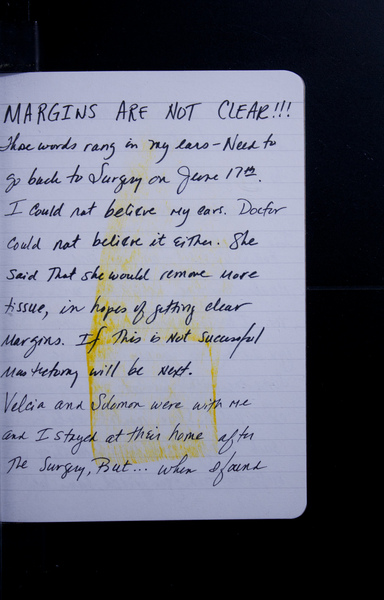 MARGINS ARE NOT CLEAR!!!
Those words rang in my ears - Need to
go back to Surgery on June 17th.
I could not believe my ears. Doctor
could not believe it either. She
said that she would remove more
tissue, in hopes of getting clear
margins. If this is not successful
mastectomy will be next.
Velcia and Solomon were with me
and I stayed at their home after
the surgery, But... when I found